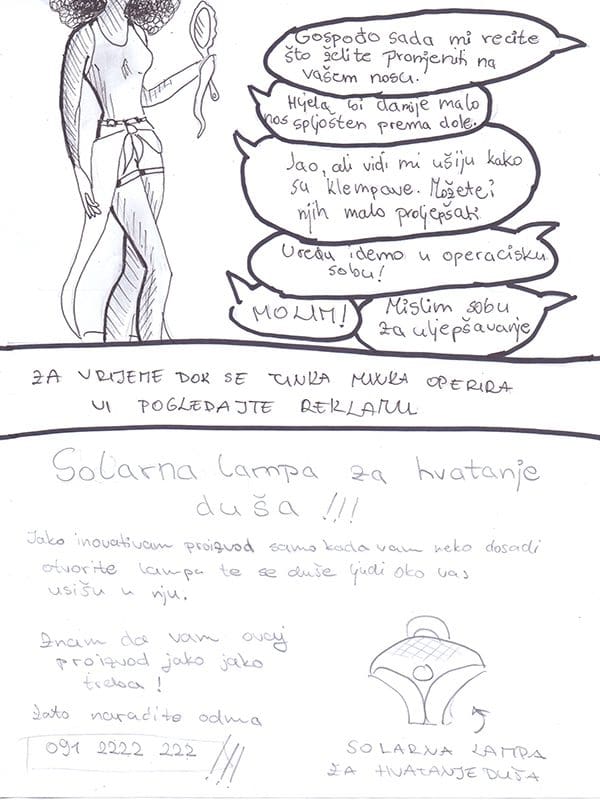 Gospođo sada mi recite
što želite promjeniti na
vašem nosu.
Htjela bi da mije malo
nos spljošten prema dole.
Jao, ali vidi mi ušiju kako
su klempave. Možete i
njih malo proljepšati
Uredu idemo u operacisku
sobu!
MOLIM!
Mislim sobu
za uljepšavanje
ZA VRIJEME DOK SE TINKA MINKA OPERIRA
VI POGLEDAJTE REKLAMU
Solarna lampa za hvatanje
duša !!!
Jako inovativan proizvod samo kada vam neko dosadi
otvorite lampa te se duše ljudi oko vas
usišu u nju.
Znam da vam ovaj
proizvod jako jako
treba!
Zato naručite odma
091 2222 222 !!!
SOLARNA LAMPA
ZA HVATANJE DUŠA